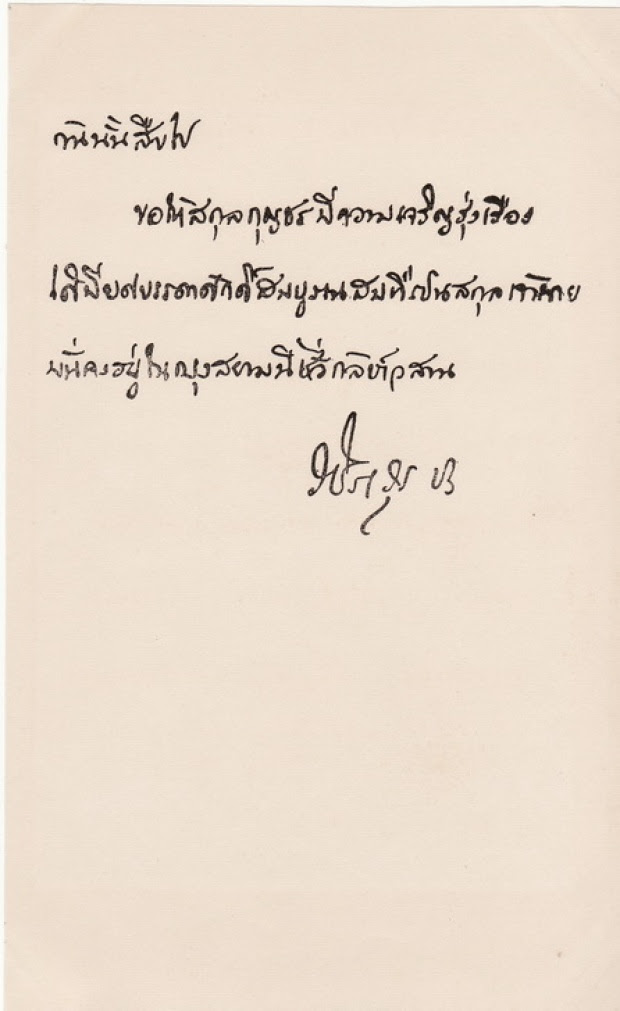 กานินั้นสืบไป
ขอให้สกุลกุญชรมีความเจริญรุ่งเรือง
ได้มียศบรรดาศักดิ์สมบูรณสมที่เปนสกุลเจ้านาย
มั่นคงอยู่ในกรุงสยามนี้ชั่วกัลปาวสาน
ปร